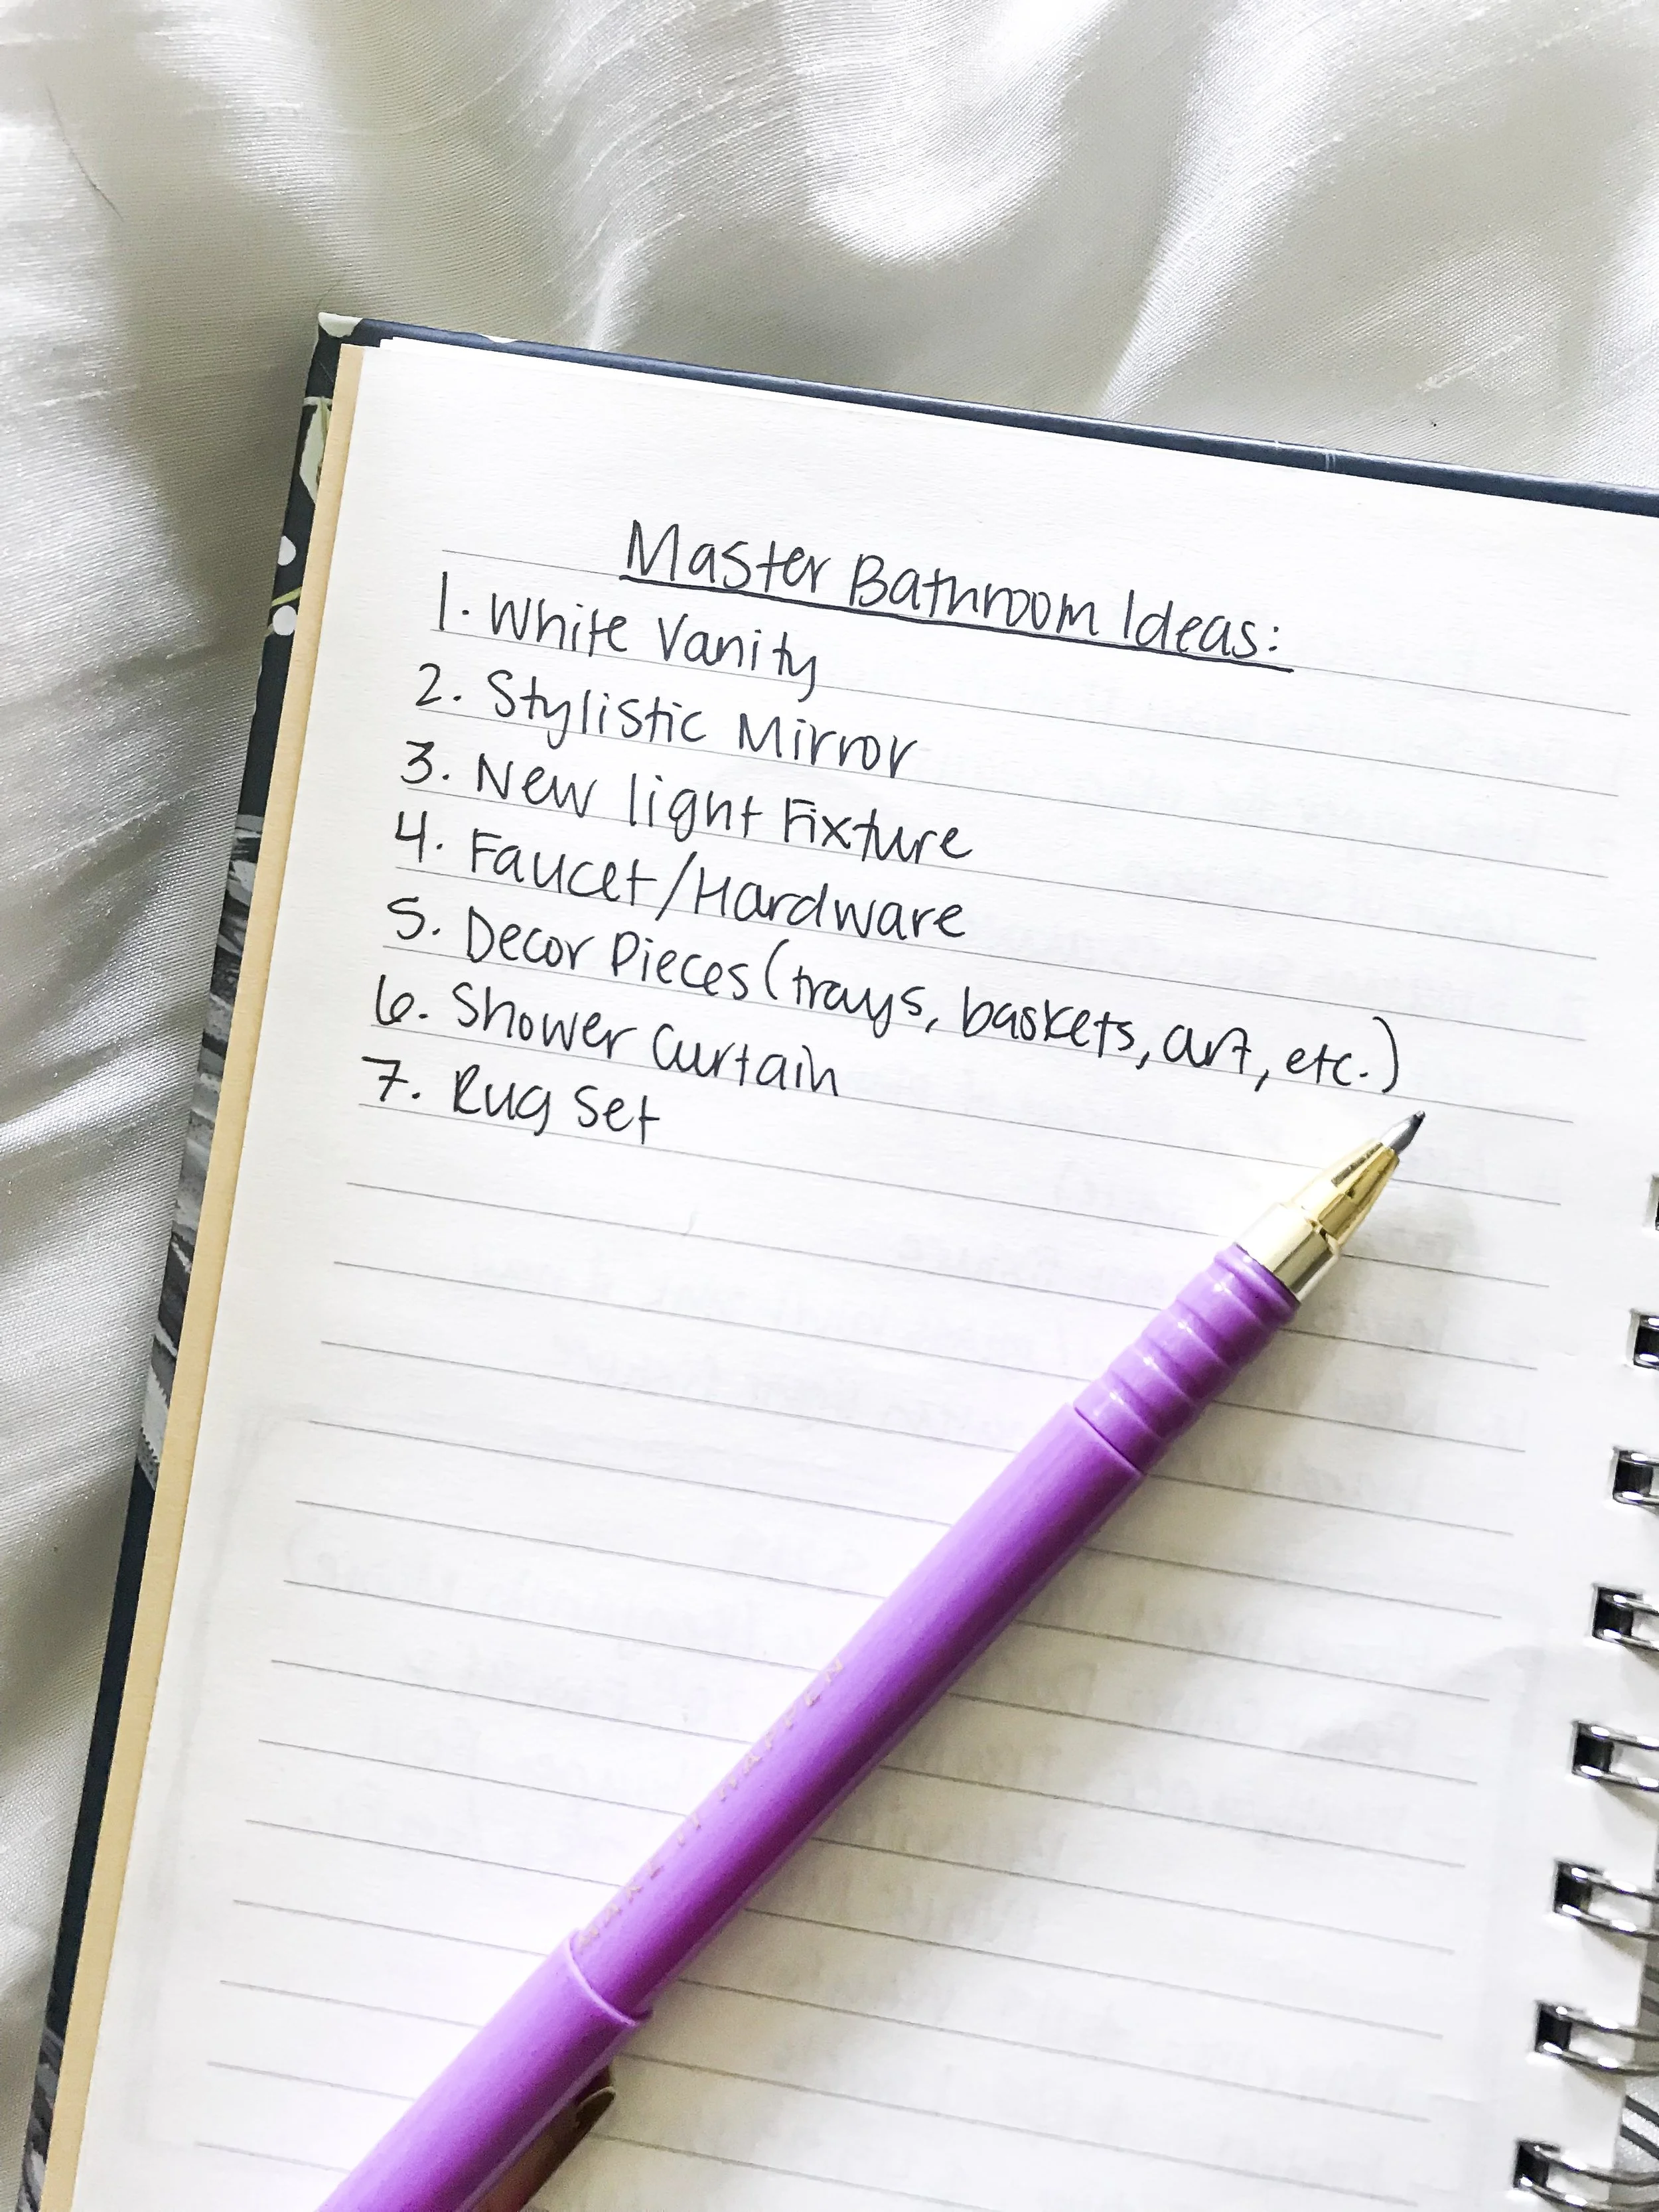 Master Bathroom Ideas:
1. White Vanity
2. Stylistic Mirror
3. New light Fixture
4. Faucet/Hardware
5. Decor Pieces (trays, baskets, art, etc.)
6. Shower Curtain
7. Rug Set
MAKE IT HAPPEN